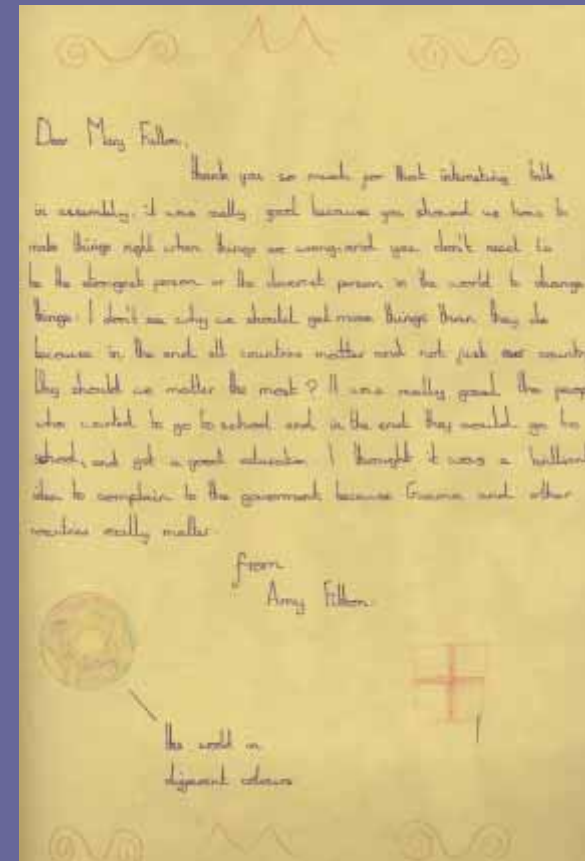 Dear Mary
thank you so much for that interesting talk
in assembly, it was really good because you showed us how to
make things right when things are wrong and you don't need to
be the strongest person or the cleverest person in the world to change
things. I don't see why we should get more things than they do
because in the end all countries matter and not just our
Why should we matter the most? It was really good the
who wanted to go to school and in the end they would go to
school, and get a good education. I thought it was a brilliant
idea to complain to the goverment because and other
countries really matter.
from
Amy
the world in
different colours